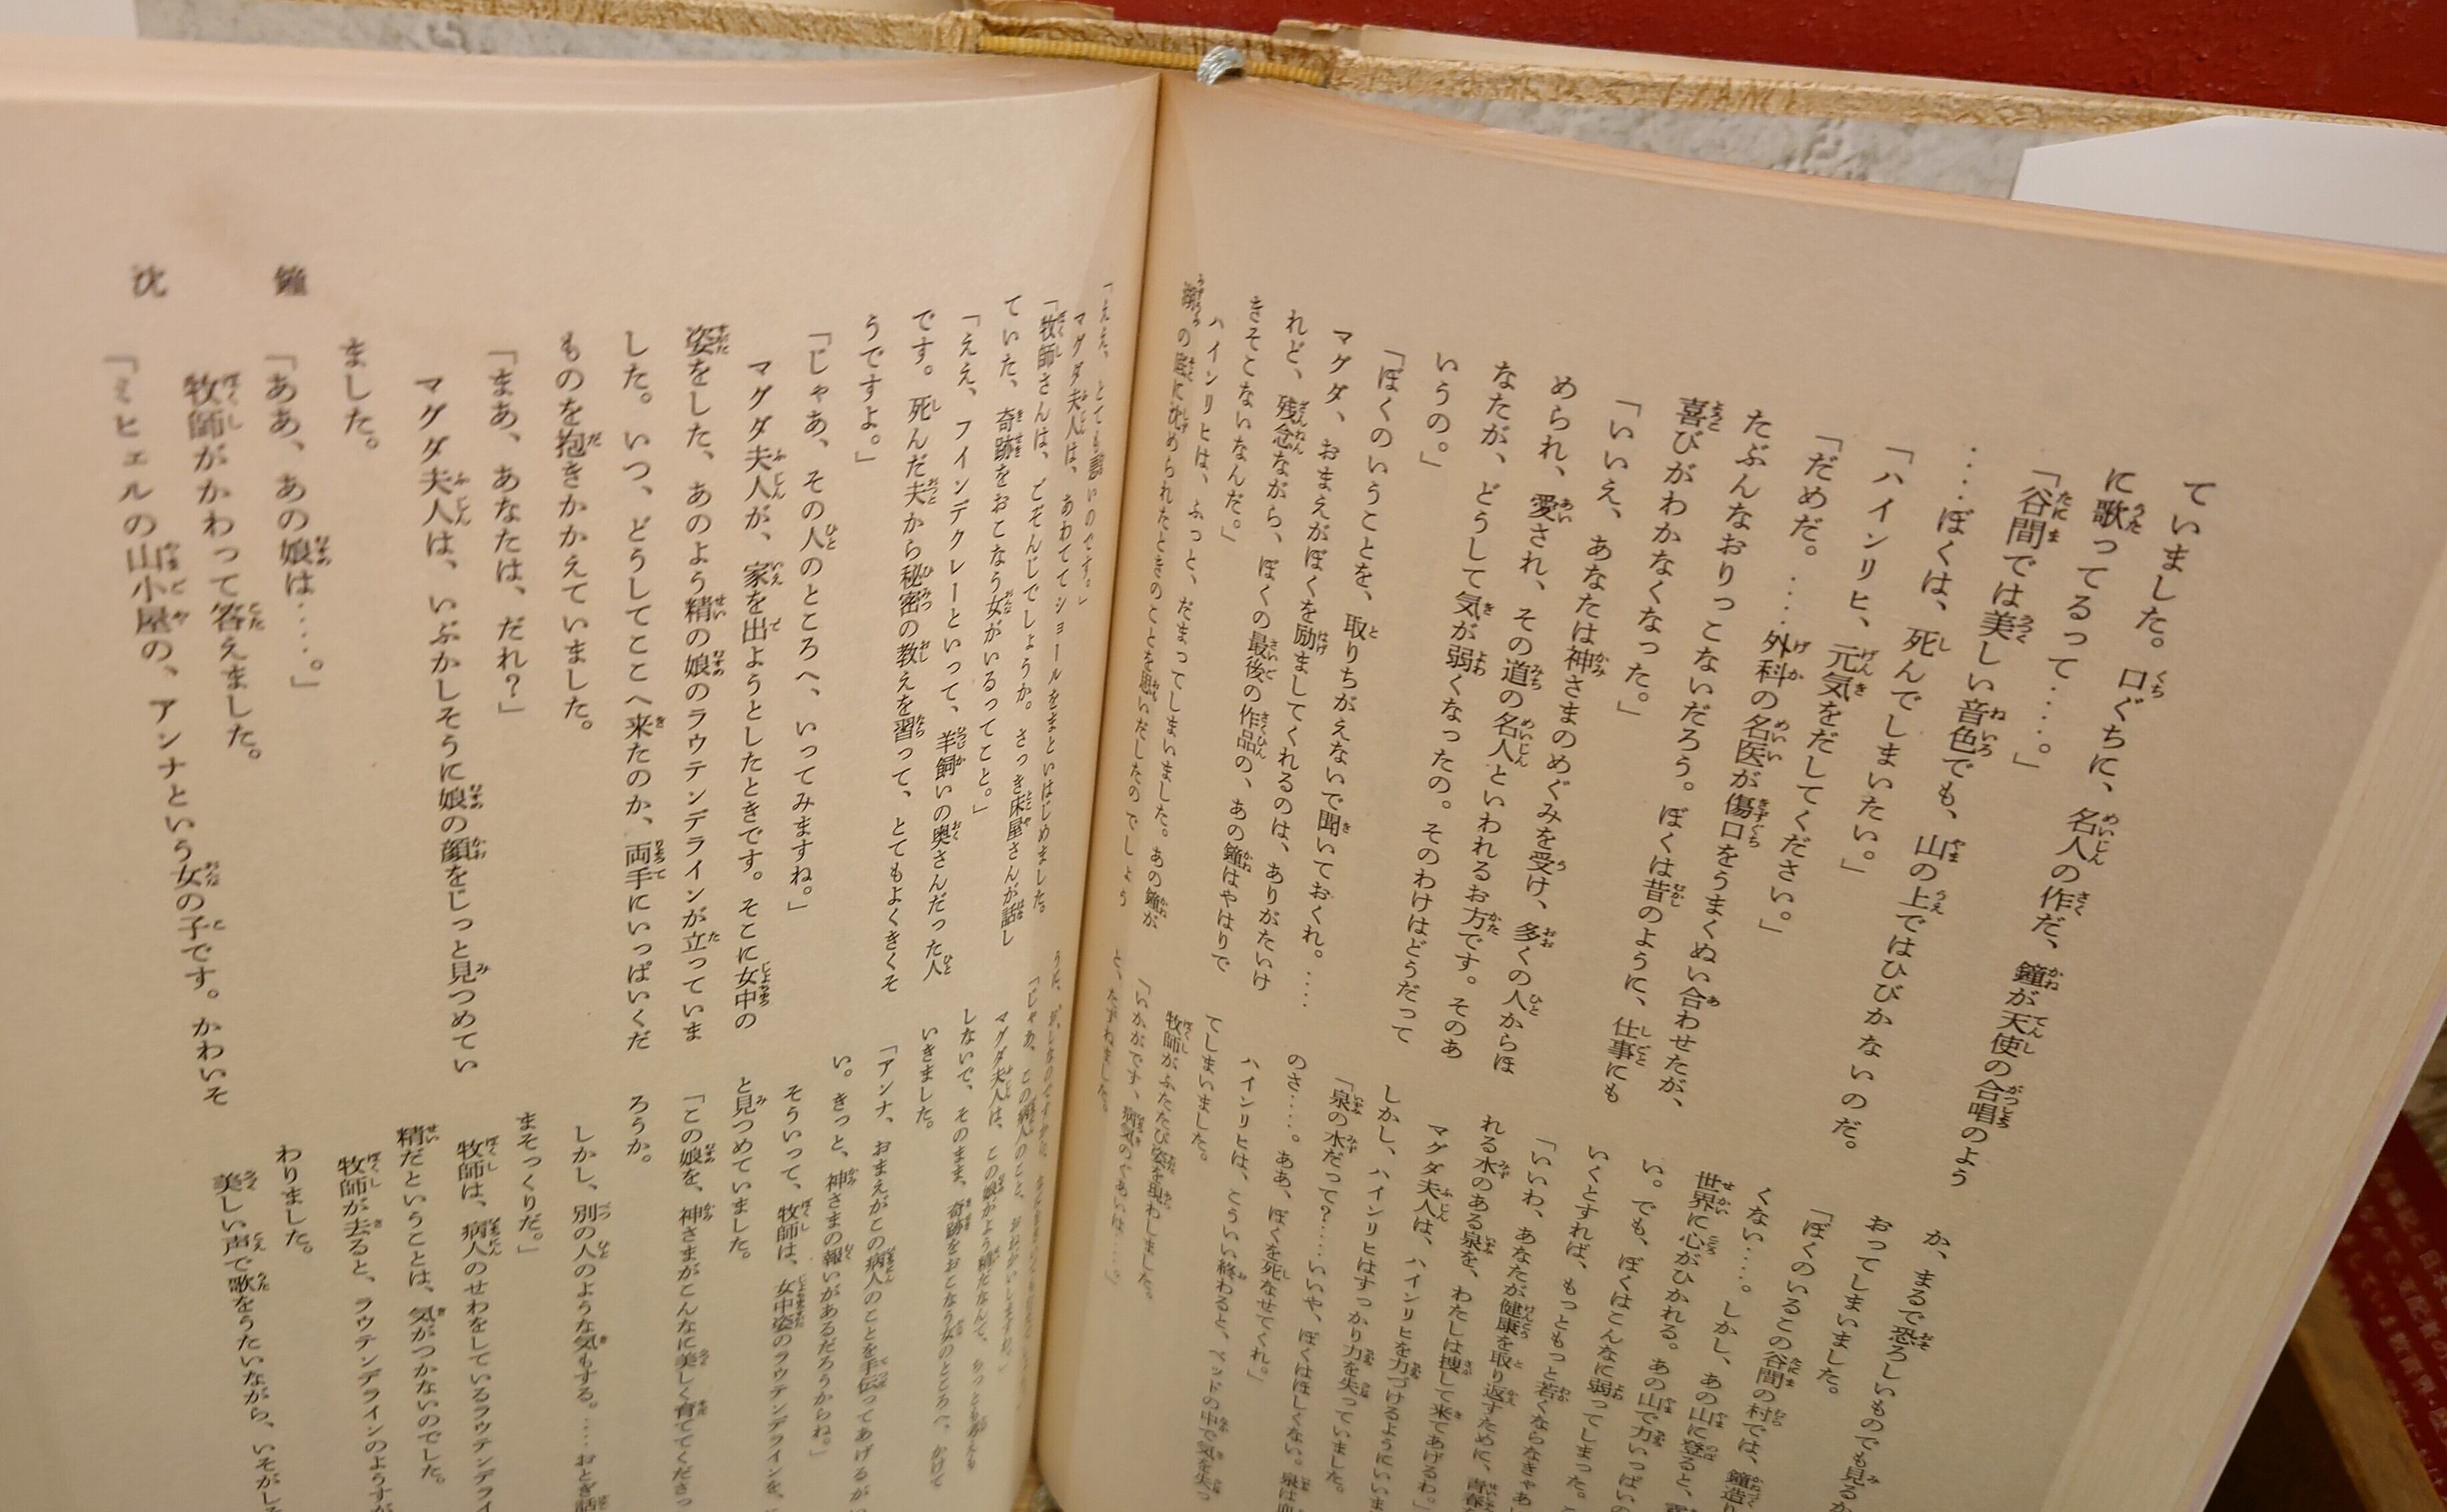 ていました。口ぐちに、名人の作だ、鐘が天使の合唱のよう
に歌ってるって‥‥。」
「谷間では美しい音色でも、山の上ではひびかないのだ。
‥‥ぼくは、死んでしまいたい。」
「ハインリヒ、元気をだしてください。」
「だめだ。‥‥外科の名医が傷口をうまくぬい合わせたが、
たぶんなおりっこないだろう。ぼくは昔のように、仕事にも
喜びがわかなくなった。」
「いいえ、あなたは神さまのめぐみを受け、多くの人からほ
められ、愛され、その道の名人といわれるお方です。そのあ
なたが、どうして気が弱くなったの。そのわけはどうだって
いうの。」
「ぼくのいうことを、取りちがえないで聞いておくれ。‥‥
マグダ、おまえがぼくを励ましてくれるのは、ありがたいけ
れど、残念ながら、ぼくの最後の作品の、あの鐘はやはりで
きそこないなんだ。」
ハインリヒは、ふっと、だまってしまいました。あの鐘が
湖の底に沈められたときのことを思いだしたのでしょう
か、まるで恐ろしいものでも見るか
おってしまいました。
「ぼくのいるこの谷間の村では、鐘造り
くない‥‥。しかし、あの山に登ると、
世界に心がひかれる。あの山で力いっぱいの
い。でも、ぼくはこんなに弱ってしまった。
いくとすれば、もっともっと若くならなきゃあ
「いいわ、あなたが健康を取り返すために、青春を
れる水のある泉を、わたしは捜して来てあげるわ。」
マグダ夫人は、ハインリヒを力づけるようにいいま
しかし、ハインリヒはすっかり力を失っていました。
「泉の水だって?‥‥いいや、ぼくはほしくない。泉は血
のさ‥‥。ああ、ぼくを死なせてくれ。」
ハインリヒは、こういい終わると、ベッドの中で気を失っ
てしまいました。
牧師がふたたび姿を現わしました。
「いかがです、病気のぐあいは‥‥。」
と、たずねました。
「ええ、とても悪いのです。」
マグダ夫人は、あわててショールをまといはじめました。
「牧師さんは、ごぞんじでしょうか。さっき床屋さんが話し
ていた、奇跡をおこなう女がいるってこと。」
「ええ、フインデクレーといって、羊飼いの奥さんだった人
です。死んだ夫から秘密の教えを習って、とてもよくきくそ
うですよ。」
「じゃあ、その人のところへ、いってみますね。」
マグダ夫人が、家を出ようとしたときです。そこに女中の
姿をした、あのよう精の娘のラウテンデラインが立っていま
した。いつ、どうしてここへ来たのか、両手にいっぱいくだ
ものを抱きかかえていました。
「まあ、あなたは、だれ?」
マグダ夫人は、いぶかしそうに娘の顔をじっと見つめてい
ました。
「ああ、あの娘は‥‥。」
牧師がかわって答えました。
「ミヒェルの山小屋の、アンナという女の子です。かわいそ
「じゃあ、この病人のこと、
マグダ夫人は、この娘がよう精だなんて、ちっとも考えも
しないで、そのまま、奇跡をおこなう女のところへ、かけて
いきました。
「アンナ、おまえがこの病人のことを手伝ってあげるがい
い。きっと、神さまの報いがあるだろうからね。」
そういって、牧師は、女中姿のラウテンデラインを、
と見つめていました。
「この娘を、神さまがこんなに美しく育ててくださっ
ろうか。
しかし、別の人のような気もする。‥‥おとぎ話
まそっくりだ。」
牧師は、病人のせわをしているラウテンデライ
精だということは、気がつかないのでした。
牧師が去ると、ラウテンデラインのようすが
わりました。
美しい声で歌をうたいながら、いそがし
沈
鐘